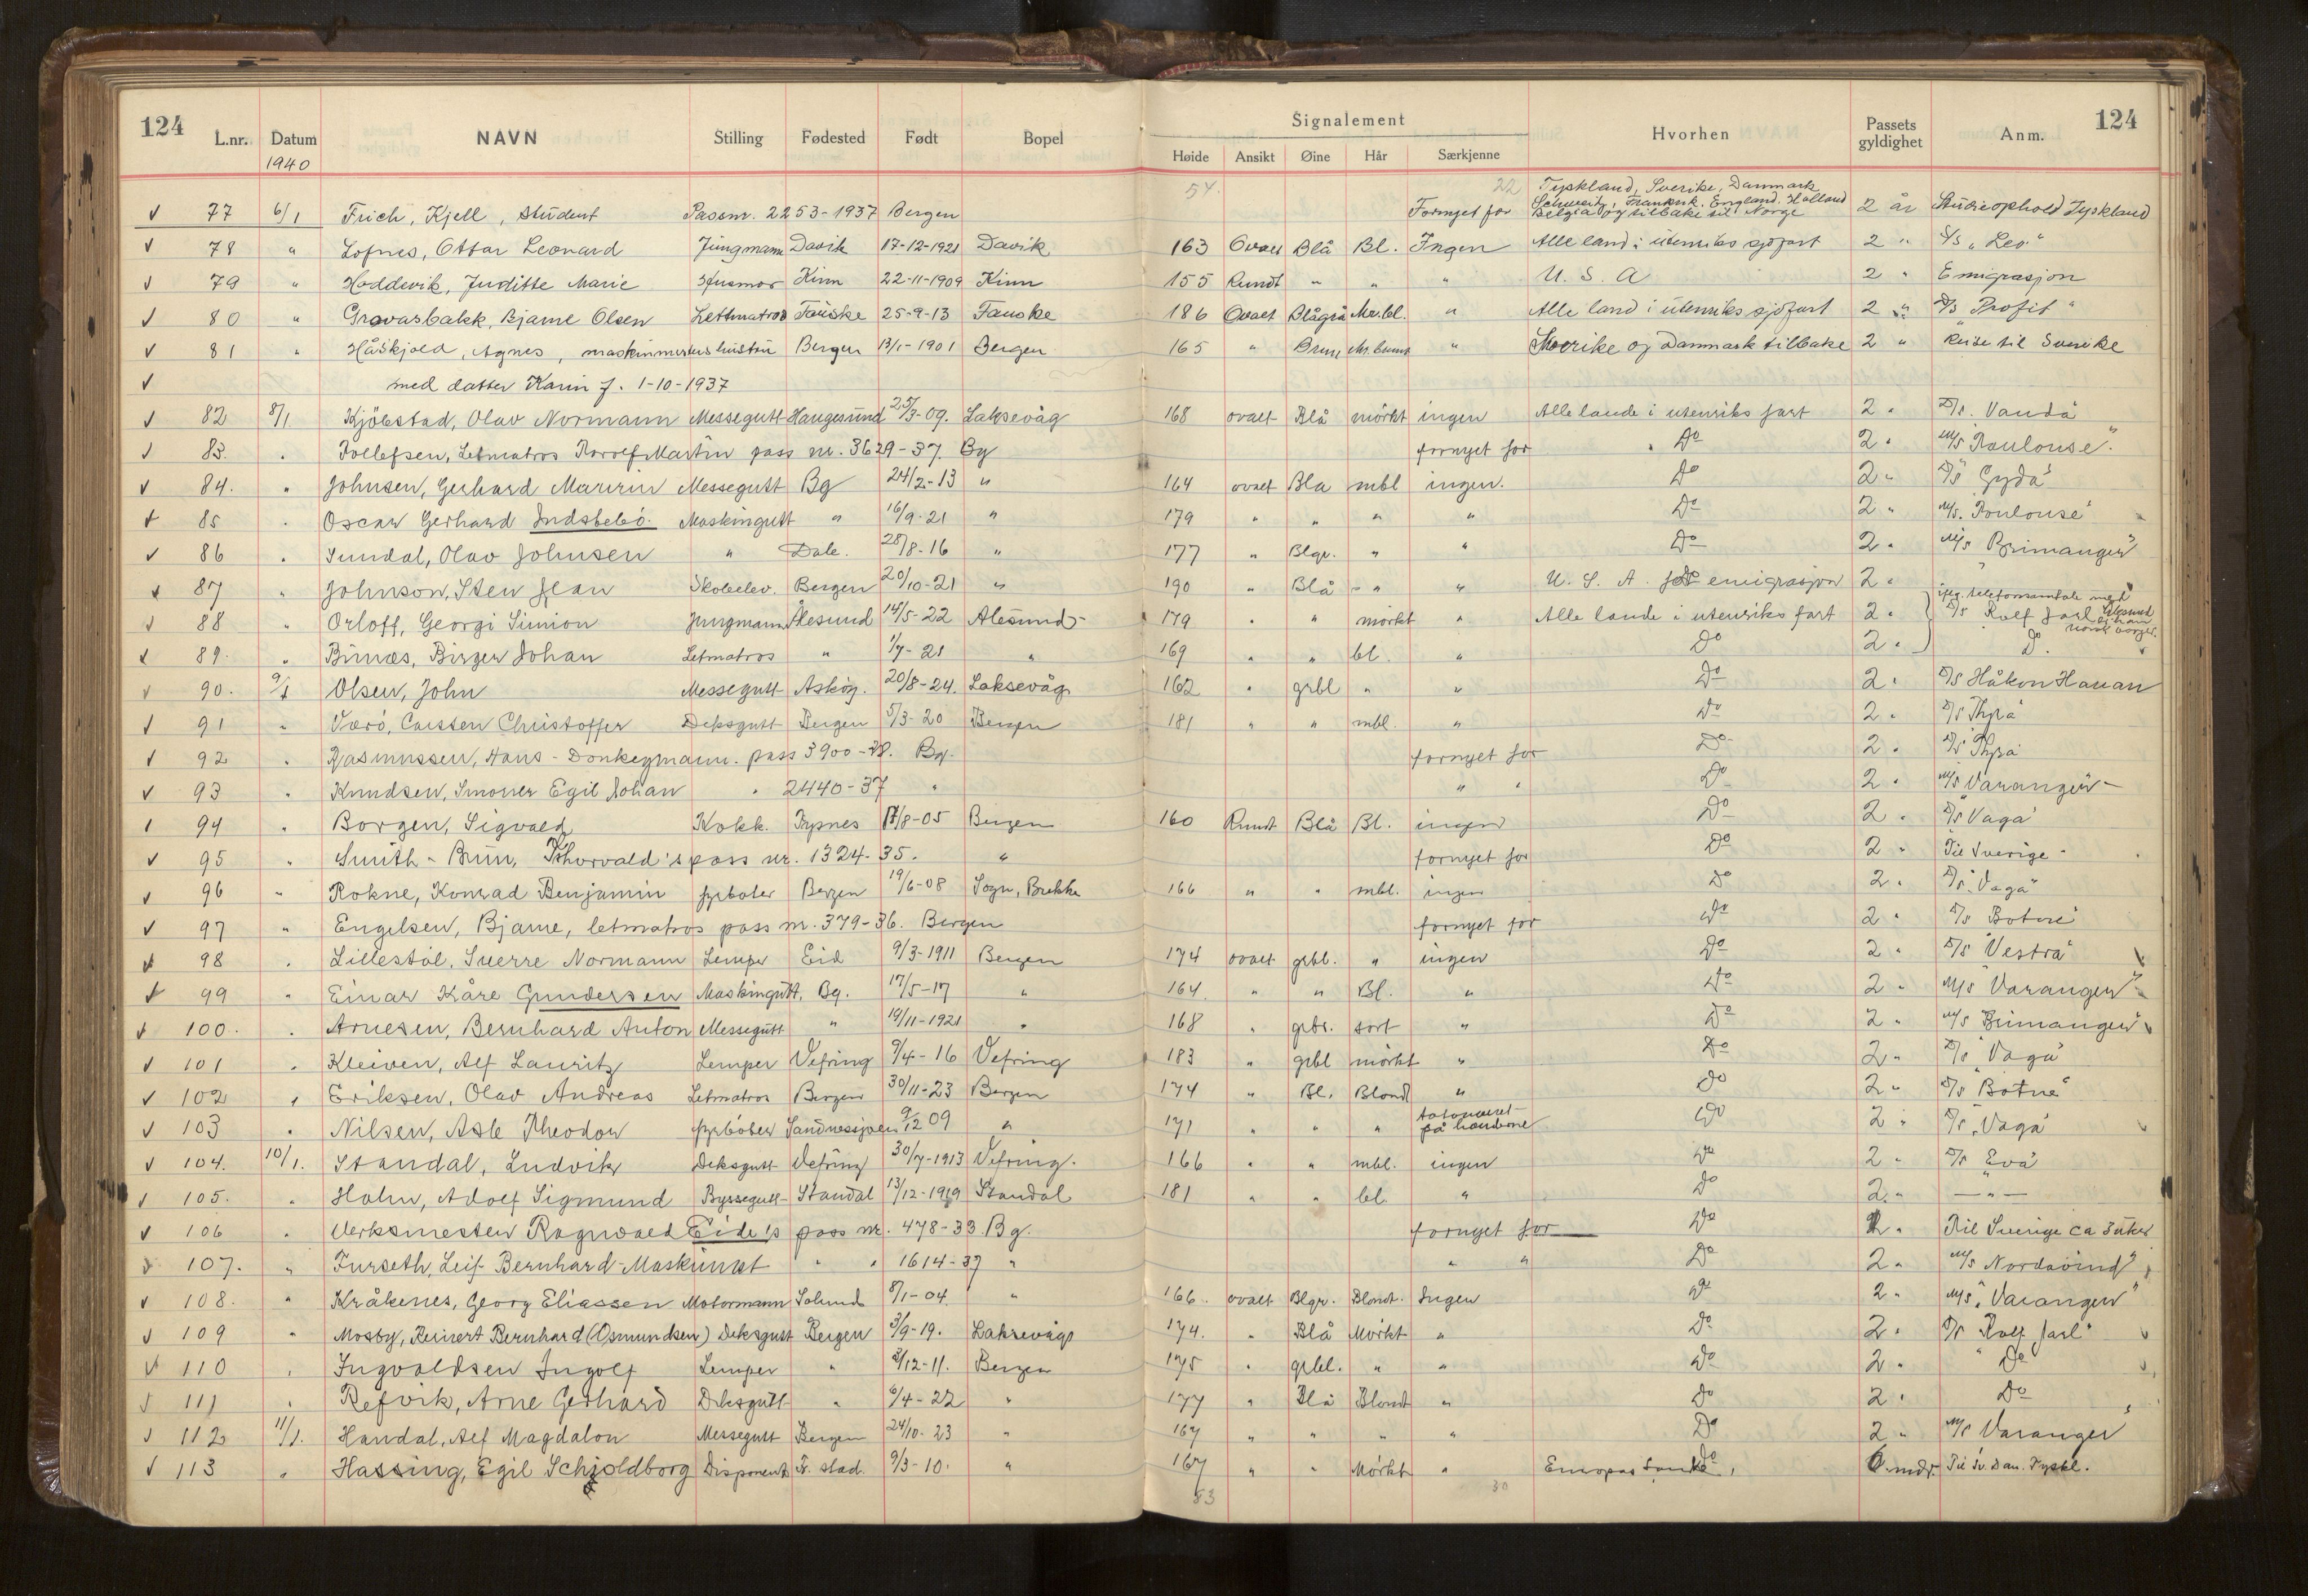 124 L.nr. Datum NAVN Stilling Fødested Født Bopel
1940
Signalement
Høide Ansikt Øine Hår Særkjenne Hvorhen Passets gyldighet Anm. 124
54. 22 Tyskland, Sverike, Danmark
Schweitz, Frankrik. England. Holland
77 6/1 Frich, Kjell, student Passnr. 2253-1937 Bergen Fornyet for Belgia og tilbake til Norge 2 år Studieophold Tyskland
78 " Lofnes, Ottar Leonard Jungmann Davik 17-12-1921 Davik 163 Ovalt Blå Bl. Ingen Alle land i utenriks sjøfart 2 " D/s „Leo"
79 " Hoddevik, Juditte Marie Husmor Kinn 22-11-1909 Kinn 155 Rundt " " " U. S. A 2 " Emigrasjon
80 " Gravasbakk, Bjarne Olsen Lettmatros Fauske 25-9-13 Fauske 186 Ovalt Blågrå Mr.bl. " Alle land i utenriks sjøfart 2 " D/s Profit"
81 " Håskjold, Agnes, maskinmestershustru Bergen 13/1-1901 Bergen 165 " Brune Mr. brunt " Sverike og Danmark tilbake 2 " Reise til Sverike
med datter Karin f. 1-10-1937
82 8/1 Kjölstad, Olav Normann Messegutt Haugesund 25/3-09. Laksevåg 168 ovalt Blå mörkt ingen Alle lande i utenriks fart 2 " D/s. Vanda"
83. " Tollefsen, Letmatros Rorolf Martin pass nr. 3629-37. Bg fornyet for Do 2 " M/s "Toulouse".
84. " Johnsen, Gerhard Maririn Messegutt Bg 24/2-13 " 164 ovalt Bla mbl ingen. Do 2 " D/s Gyda"
85 " Oscar Gerhard Indstebö. Maskingutt " 16/9-21 " 179 " " " " Do 2 " M/s. Toulouse"
86 " Sundal, Olav Johnsen " Dale. 28/8-16 " 177 " Blgr. " " Do 2 " M/s Brimanger"
87 " Johnson, Sten Jean Skoleelev. Bergen 20/10-21 " 190 " Blå " " U. S. A. for emigrasjon 2 "
iflg. telefonsamtale med
88 " Orloff, Georgi Simion Jungmann Ålesund 14/5-22 Alesund 179 " " mörkt " Alle lande i utenriks fart 2 " D/s Rolf Jarl Ålesund er han norsk borger.
89. " Birnæs, Birger Johan Letmatros " 1/7-21 " 169 " " bl. " Do 2 " Do.
90. 9/1 Olsen, John Messegutt Askög. 20/8-24. Laksevåg 162 " grbl " " Do 2 " D/s Håkon Hauan
91 " Værö, Carsten Christoffer Deksgutt Bergen 5/3-20 Bergen 181 " " mbl. " Do 2 " D/s Thyra"
92 " Rasmussen, Hans - Donkeymann. pass 3900-38. Bg. fornyet for Do 2 " D/s Thyra
93 " Knudsen, Smörer Egil Johan " 2440-37 " " " Do 2 " M/s Varanger"
94 " Borgen, Sigvald Kokk. Rypnes 17/8-05 Bergen 160 Rundt Blå Bl. ingen Do 2 " D/s Vaga"
95 " Smith-Brun, Thorvald's pass nr. 1324-35. " fornyet for Do 2 " Til Sverige
96 " Rokne, Konrad Benjamin fyrböter Bergen 19/6-08 Sogn, Brekke 166 " " mbl. ingen Do 2 " D/s. Vaga"
97 " Engelsen, Bjarne, letmatros pass nr. 379-36. Bergen fornyet for Do 2 " D/s Botne"
98 " Lillestöl, Sverre Normann Lemper Eid 9/3-1911 Bergen 174 ovalt grbl. " ingen Do 2 " D/s Vestra"
99 " Einar Kåre Gundersen Maskingutt. Bg. 17/5-17 " 164. " " Bl. " Do 2 " M/s Varanger"
100. " Arnesen, Bernhard Anton Messegutt " 19/11-1921 " 168 " grbr. sort " Do 2 " M/s Brimanger"
101 " Kleiven, Alf Lauritz Lemper Vefring 9/4-16 Vefring 183 " grbl mörkt " Do 2 " D/s "Vaga"
102 " Eriksen, Olav Andreas Letmatros Bergen 30/11-23 Bergen 174 " Bl. Blond " Do 2 " D/s "Botne"
103 " Nilsen, Asle Theodor fyrböter Sandnessjöen 9/12 09 " 171 " " " tatoveret på hændene Do 2 " D/s. Vaga"
104. 10/1. Standal, Ludvik Deksgutt Vefring 30/7-1913 Vefring. 166 " " mbl. ingen Do 2 " D/s Eva"
105. " Hahn, Adolf Sigmund Byssegutt Standal 13/12-1919 Standal 181 " " bl. " Do 2. " —"—
106 " Verksmester Ragnvald Eide's pass nr. 478-33 Bg. fornyet for Do 2 " Til Sverige ca 3 uker
107. " Furseth, Leif Bernhard-Maskinist " " 1614-37 " " " Do 2 " M/s Nordavind"
108. " Kråkenes, Georg Eliassen Motormann Solund 8/1-04. " 166. ovalt Blgr. Blondt. Ingen Do 2 " M/s „Varanger"
109 " Mosby, Reinert Bernhard (Osmundsen) Deksgutt Bergen 3/9-19. Laksevåg 174. " Blå Mörkt " Do 2 " D/s Rolf Jarl"
110 " Ingvaldsen Ingolf Lemper " 2/12-11. Bergen 175 " grbl. " " Do 2 " Do
111 " Refvik, Arne Gerhard Deksgutt " 6/4-22 " 177 " Blå Blondt " Do 2 " Do
112 11/1. Handal, Alf Magdalon Messegutt Bergen 24/10-23 " 167 " " " " Do 2 " M/s Varanger"
113 " Hassing, Egil Schjoldborg Disponent Fr. stad. 9/3-10. " 167 " " Mörkt " Europas lande, 6 mdr. Til Sv. Dan. Tyskl.
83 30